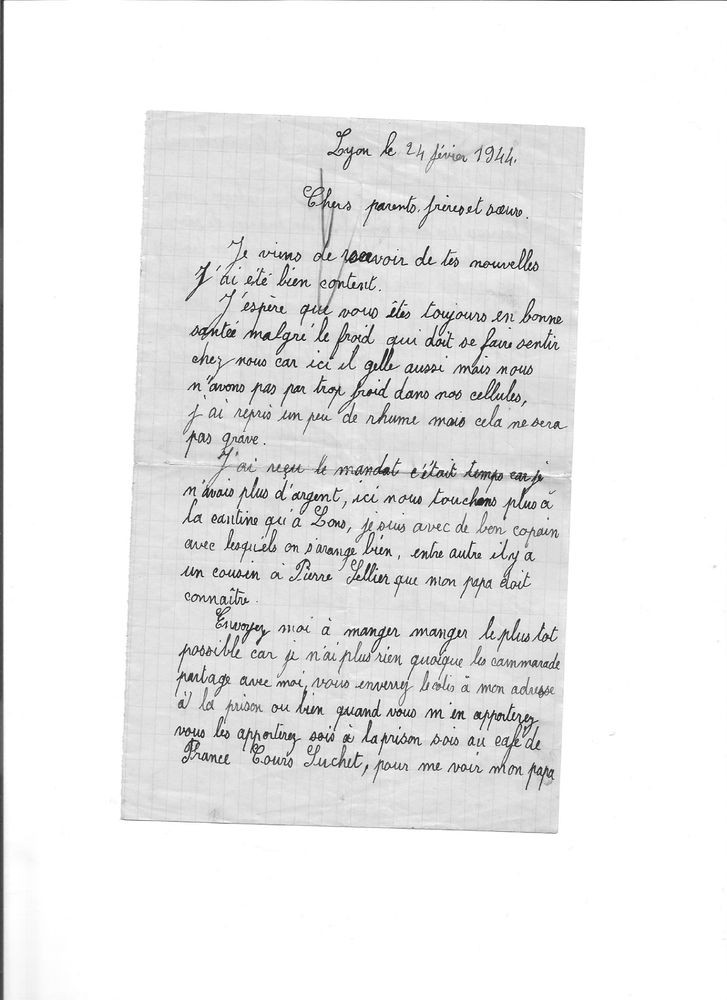 Lyon le 24 févier 1944.
Chers parents. frères et sœurs.
Je viens de recevoir de tes nouvelles
J'ai été bien content.
J'espère que vous êtes toujours en bonne
santée malgré le froid qui doit se faire sentir
chez nous car ici il gelle aussi mais nous
n'avons pas par trop froid dans nos cellules,
j'ai repris un peu de rhume mais cela ne sera
pas grave.
J'ai reçu le mandat c'était temps car je
n'avais plus d'argent, ici nous touchons plus à
la cantine qu'à Lons, je suis avec de bon copain
avec lesquels on s'arange bien, entre autre il y a
un cousin à Pierre Sellier que mon papa doit
connaître.
Envoyez moi à manger manger le plus tot
possible car je n'ai plus rien quoique les cammarade
partage avec moi, vous enverrez le colis à mon adresse
à la prison ou bien quand vous m'en apporterez
vous les apporterez sois à la prison sois au café de
France Cours Suchet, pour me voir mon papa